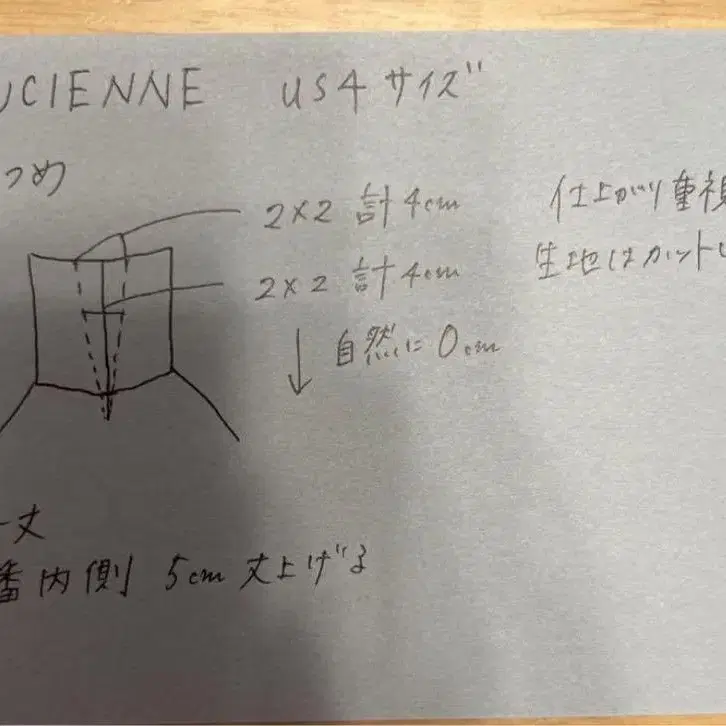 UCIENNE US4サイズ
つめ
2×2 計4cm
2×2 計4cm
↓ 自然に0cm
仕上がり重視
生地はカットし
丈
番内側 5cm 丈上げる